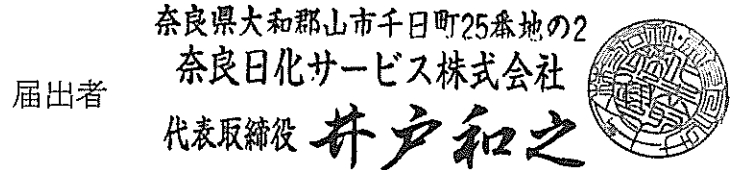 奈良県大和郡山市千日町25番地の2
奈良日化サービス株式会社
届出者
代表取締役 井戸和之